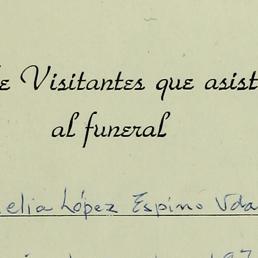 de Visitantes que asist
al funeral
elia López Espino Vda